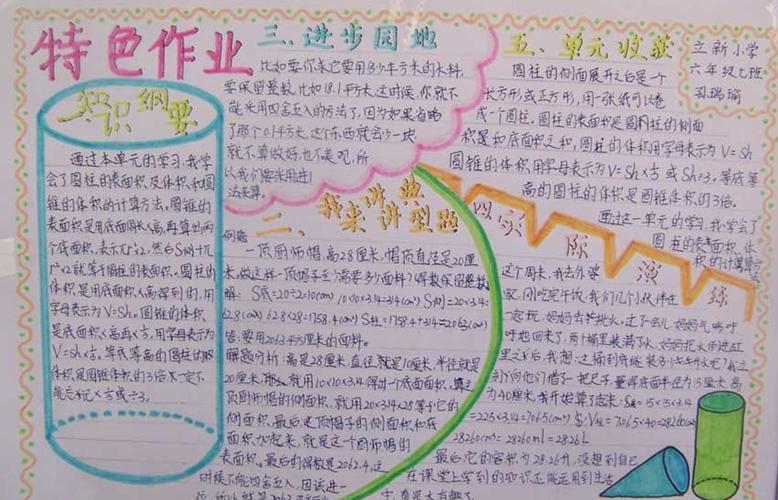 特色作业
知识纲要
通过本单元的学习,我学
会了圆柱的表面积及体积和圆
锥的体积的计算方法。圆锥的
表面积是用底面周长×高,再算出两
个底面积,表示
就等于圆柱的表面积。圆柱的
体积是用底面积×高得到的,用
字母表示为V=Sh。圆锥的体积
是底面积×高再×⅓,用字母表示为
V=Sh×⅓。等底等高的圆柱的
体积是圆锥体积的3倍,一定不
能忘记×⅓或÷3。
三、进步园地
比如要你求它要用多少平方米的木料,
要保留整数,比如18.1平方米,这时候,你就不
能采用四舍五入的方法了,因为如果省略
了那个0.1平方米,这个东西就会少一块,
就不算做好,也不美观,所
以我们要采用进1
法去算。
二、我来讲讲典型题
例题
一顶厨师帽,高28厘米,帽顶直径是20厘
米,做这样一顶帽子至少需要多少面料?(得数保留整数)
解: S底=20÷2=10(cm) 10×10×3.14=314(cm²) S侧=20×3.14=
62.8(cm) 62.8×28=1758.4(cm²) S柱=1758.4+314=2063(cm²)
答:要用2063平方厘米的面料。
解题分析:高是28厘米,直径就是10厘米,半径就是
20厘米,那么就用10×10×3.14得出一个底面面积,算
顶厨师帽的侧面积,就用20×3.14×28等于它的
侧面积,最后是顶帽子的侧面积和底
面积加起来,就是这个厨师帽的
表面积。最后的得数是2062.4,这
时候不能四舍五入,因该进一
五、单元收获
圆柱的侧面展开之后是一个
长方形或正方形,用一张纸可以卷
成一个圆柱。圆柱的表面积是圆柱的侧面
积和底面积之和,圆柱的体积用字母表示为V=Sh
圆锥的体积用字母表示为V=Sh×⅓或Sh÷3。等底等
高的圆柱的体积是圆锥体积的3倍。
通过这一单元的学习,我学会了
圆柱的表面积、体
积的计算
立新小学
六年级七班
孔瑞瑜
四、实际演练
这个周末,我去外婆
家,刚吃完午饭,我们几个小伙伴在
一起玩,妈妈去
呼地回来了,两个桶里装满了水,妈妈把水倒进缸
里之后,我想:这桶到底能装多少
刻向他们借了一把尺子,量得底面半径为15厘米,高
为40厘米,我开始算了起来:S底=15×15×3.14
=225×3.14=706.5(cm²) V柱=706.5×40=28260(cm³)
28260cm³=28260ml=28.26L
最后,它的容积为28.26升,没想到自己
在课堂上学到的知识还能运用到生活
中,真是太有趣了。